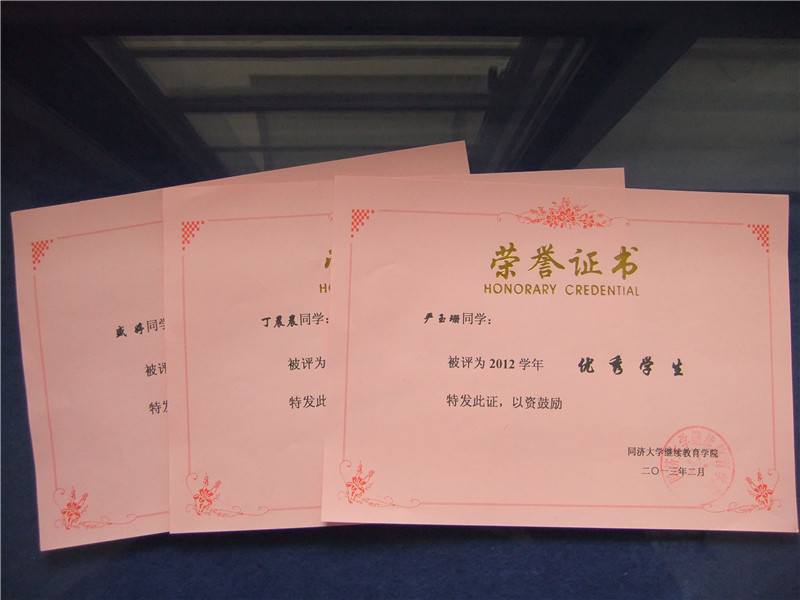 盛婷同学
被评
特发
HO
丁晨晨同学：
被评为
特发此
荣誉证书
HONORARY CREDENTIAL
严玉珊同学：
被评为 2012 学年 优秀学生
特发此证，以资鼓励
同济大学继续教育学院
二〇一三年二月